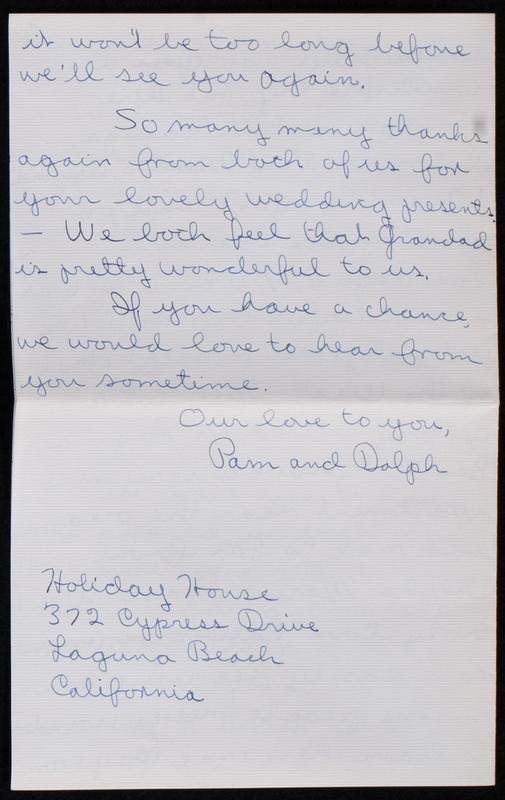 it won't be too long before
we'll see you again.
So many meny thanks
again from both of us for
your lovely wedding presents.
— We both feel that Grandad
is pretty wonderful to us.
If you have a chance,
we would love to hear from
you sometime.
Our love to you,
Pam and Dolph
Holiday House
372 Cypress Drive
Laguna Beach
California